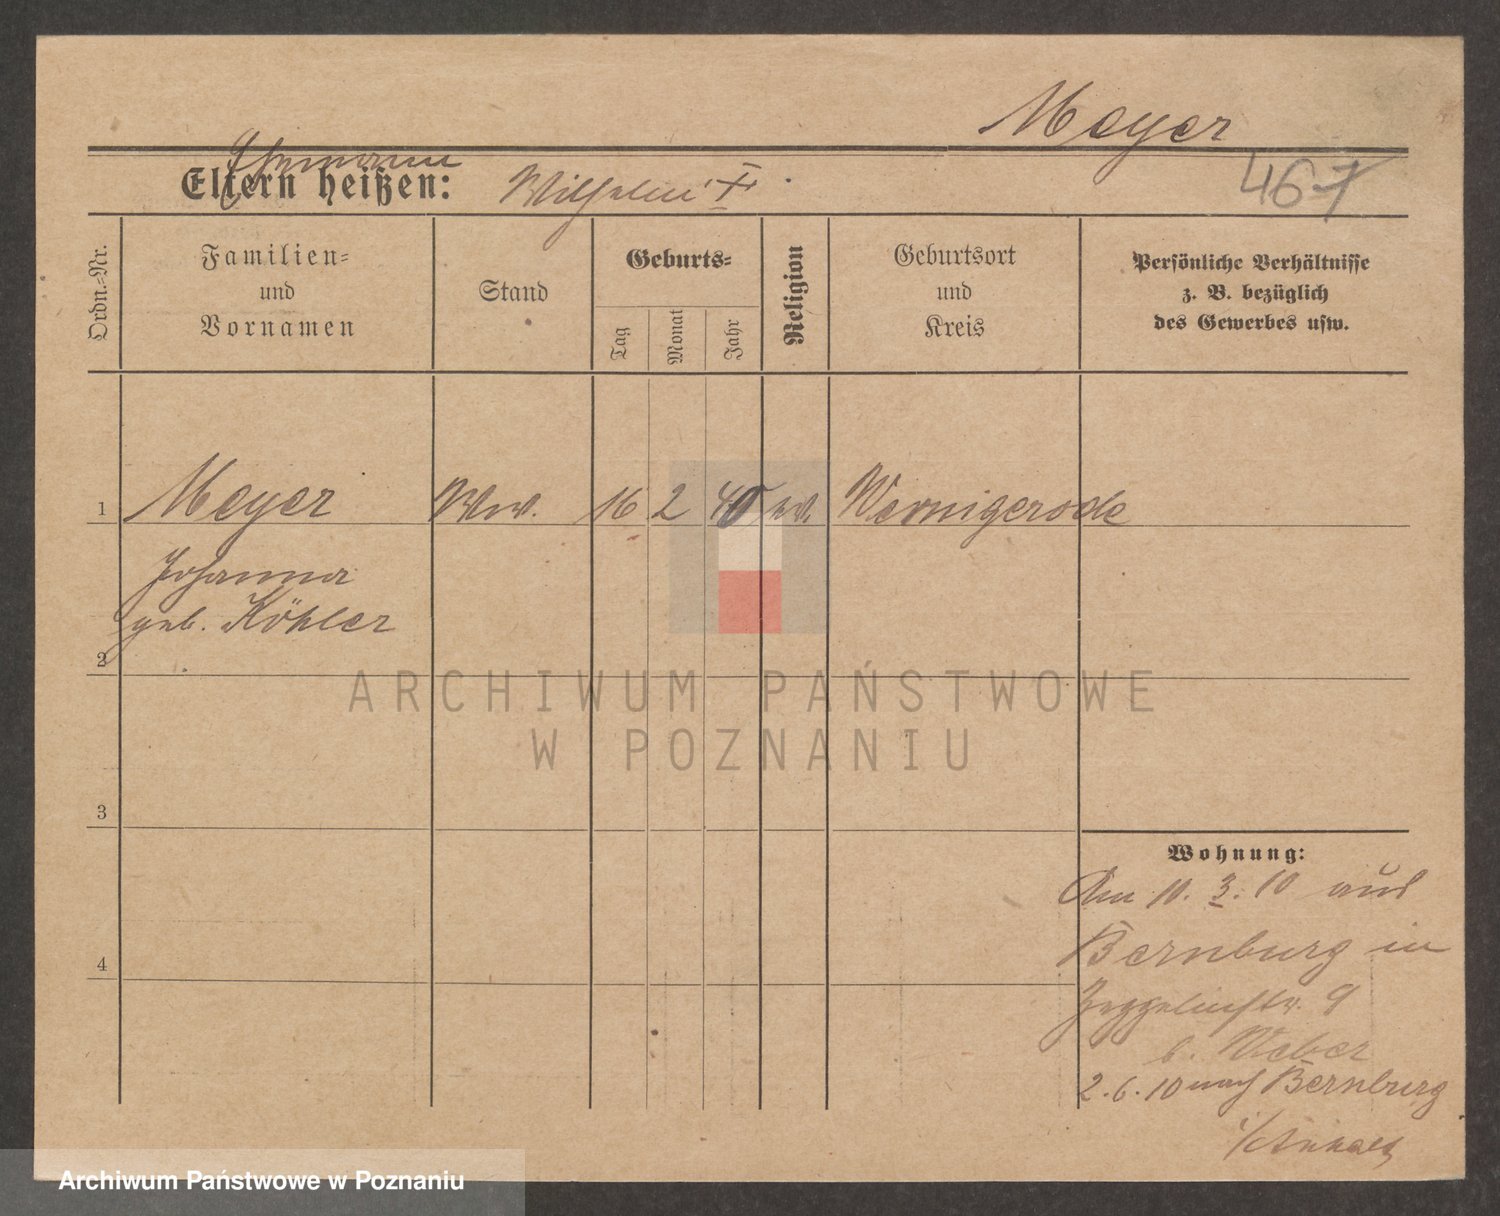 Meyer
467
Ehemann
Eltern heißen: Wilhelm †
Ordn.-Nr.
Familien-
und
Vornamen
Stand
Geburts-
Tag
Monat
Jahr
Religion
Geburtsort
und
Kreis
Persönliche Verhältnisse
z. B. bezüglich
des Gewerbes usw.
1 Meyer Ww. 16 2 40 ev. Wernigerode
Johanna
geb. Köhler
2
3
4
Wohnung:
Am 10. 3. 10 aus
Bernburg in
Zeppelinstr. 9
b. Weber
2. 6. 10 nach Bernburg
i/Anhalt
ARCHIWUM PAŃSTWOWE
W POZNANIU
Archiwum Państwowe w Poznaniu